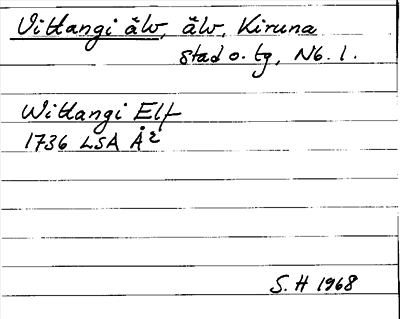 Vittangi älv, älv, Kiruna
stad o. tg, Nb. l.
Wittangi Elf
1736 LSA Å2
S. H 1968